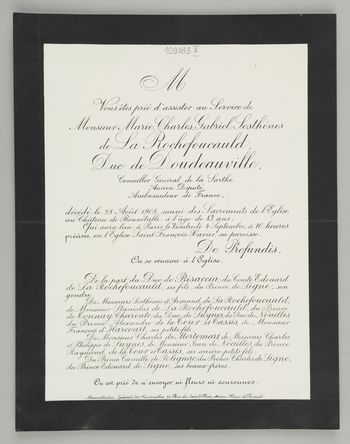 109363 III
M
Vous êtes prié d'assister au Service de
Monsieur Marie, Charles, Gabriel, Sosthènes
de La Rochefoucauld,
Duc de Doudeauville,
Conseiller Général de la Sarthe,
Ancien Député,
Ambassadeur de France,
décédé le 28 Août 1908, muni des Sacrements de l'Eglise,
au Château de Bonnétable, à l'âge de 83 ans;
Qui aura lieu à Paris le Vendredi 4 Septembre, à 10 heures
précises, en l'Eglise Saint François-Xavier, sa paroisse.
De Profundis.
On se réunira à l'Eglise.
De la part du Duc de Bisaccia, du Comte Edouard
de La Rochefoucauld, ses fils, du Prince de Ligne, son
gendre;
De Messieurs Sosthènes & Armand de La Rochefoucauld,
de Monsieur Stanislas de La Rochefoucauld, du Prince
de Tonnay Charente, du Duc de Luynes, du Duc de Noailles,
du Prince Alexandre de la Tour et Tassis, de Monsieur
François d'Harcourt, ses petits-fils;
De Monsieur Charles de Mortemart, de Messieurs Charles
et Philippe de Luynes, de Monsieur Jean de Noailles, du Prince
Raymond de la Tour et Tassis, ses arrière-petits-fils;
Du Prince Camille de Polignac, du Prince Charles de Ligne,
du Prince Edouard de Ligne, ses beaux-frères.
On est prié de n'envoyer ni fleurs ni couronnes.